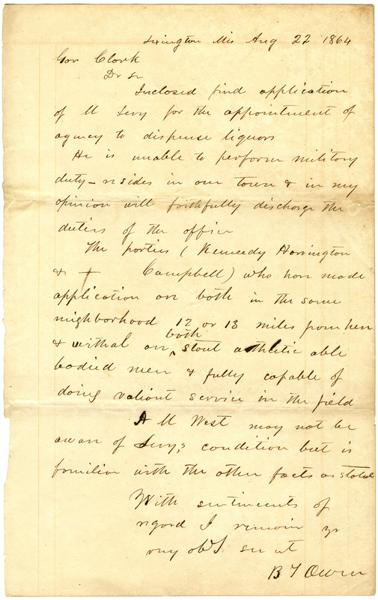 Lexington Mis Aug 22 1864
Gov Clark
Dr Sr
Inclosed find application
of M Levy for the appointment of
agency to dispense liquors
He is unable to perform military
duty - resides in our town & in my
opinion will faithfully discharge the
duties of the office
The parties (Kennedy Harrington
& + Campbell) who have made
application are both in the same
neighborhood 12 or 13 miles from here
& withal are both stout athletic able
bodied men & fully capable of
doing valiant service in the field
A M West may not be
aware of Levy,s condition but is
familiar with the other facts as stated
With sentiments of
regard I remain yr
very obt. servt
B T Owen